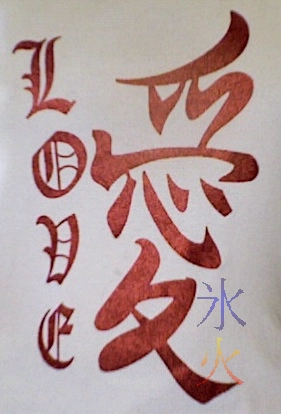 LOVE
愛
氷
火